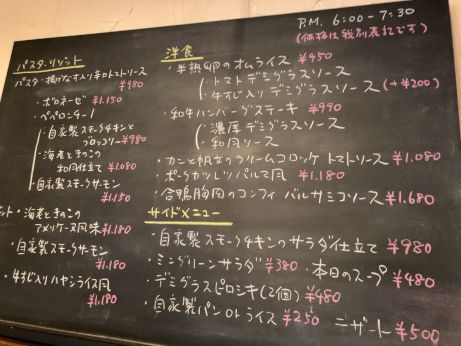 P.M. 6:00-7:30
(価格は税別表記です)
パスタ・リゾット
パスタ・揚げなす入り辛口トマトソース
¥980
・ボロネーゼ ¥1.150
・ペペロンチーノ
・自家製スモークチキンと
ブロッコリー ¥980
・海老ときのこの
和風仕立て ¥1.080
・自家製スモークサーモン
¥1.150
ゾット・海老ときのこ
アメリケーヌ風味 ¥1.180
・自家製スモークサーモン
¥1.180
・牛すじ入りハヤシライス風
¥1.180
洋食
・半熟卵のオムライス ¥950
・トマトデミグラスソース
・牛すじ入りデミグラスソース (+¥200)
・和牛ハンバーグステーキ ¥990
・濃厚デミグラスソース
・和風ソース
・カニと帆立のクリームコロッケ トマトソース ¥1.080
・ポークカツレツ パルマ風 ¥1.180
・合鴨胸肉のコンフィ バルサミコソース ¥1.680
サイドメニュー
・自家製スモークチキンのサラダ仕立て ¥980
・ミニグリーンサラダ ¥380 ・本日のスープ ¥480
・デミグラスピロシキ(2個) ¥480
・自家製パン or ライス ¥250 デザート ¥500